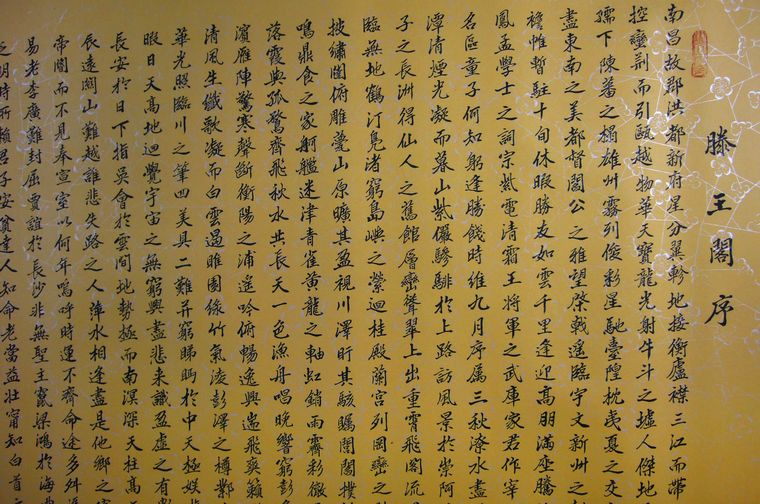 滕王閣序
南昌故郡洪都新府星分翼軫地接衡廬襟三江而帶
控蠻荊而引甌越物華天寶龍光射牛斗之墟人傑地
孺下陳蕃之榻雄州霧列俊彩星馳臺隍枕夷夏之交
盡東南之美都督閻公之雅望棨戟遙臨宇文新州之
襜帷暫駐十旬休暇勝友如雲千里逢迎高朋滿座騰
鳳孟學士之詞宗紫電清霜王將軍之武庫家君作宰
名區童子何知躬逢勝餞時維九月序屬三秋潦水盡
潭清煙光凝而暮山紫儼驂騑於上路訪風景於崇阿
子之長洲得仙人之舊館層巒聳翠上出重霄飛閣流
臨無地鶴汀鳧渚窮島嶼之縈迴桂殿蘭宮列岡巒之
披繡闥俯雕甍山原曠其盈視川澤盱其駭矚閭閻撲
鳴鼎食之家舸艦迷津青雀黃龍之軸虹銷雨霽彩徹
落霞與孤鶩齊飛秋水共長天一色漁舟唱晚響窮彭
濱雁陣驚寒聲斷衡陽之浦遙吟俯暢逸興遄飛爽籟
清風生纖歌凝而白雲遏睢園綠竹氣淩彭澤之樽鄴
華光照臨川之筆四美具二難并窮睇眄於中天極娛
暇日天高地迥覺宇宙之無窮興盡悲來識盈虛之有
長安於日下指吳會於雲間地勢極而南溟深天柱高
辰遠關山難越誰悲失路之人萍水相逢盡是他鄉之
帝閽而不見奉宣室以何年嗚呼時運不齊命途多舛
易老李廣難封屈賈誼於長沙非無聖主竄梁鴻於海
之明時所賴君子安貧達人知命老當益壯甯知白首